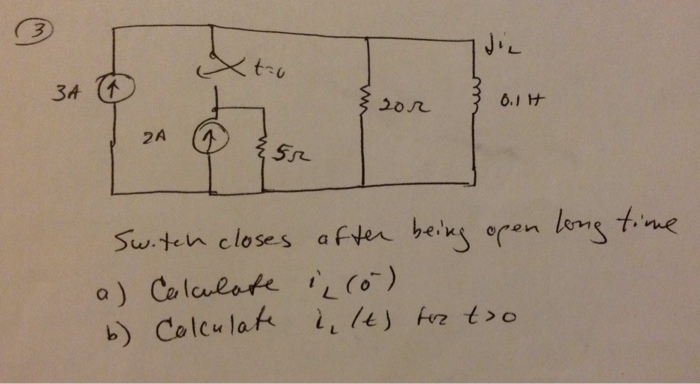 3
iL
t=0
3A
20Ω
0.1 H
2A
5Ω
Switch closes after being open long time
a) Calculate iL(0-)
b) Calculate iL(t) for t>0